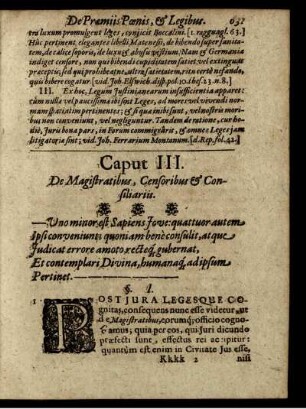 De Præmiis Pœnis, & Legibus. 631
tra luxum promulgent leges, conjicit Boccalini. [1. ragguagl. 63.]
Huc pertinent, elegantes libelli, Matenesii, de bibendi super sanitatem,
de calice saporis, de luxu & abusu vestium. Nam et Germania
indiget censore, non qui bibendi cupiditatem satiet, vel extinguat
præcepto; sed qui prohibeat ne, ultra satietatem, rixn certè nisando,
quis bibere cogatur. [vid. Joh. Elswich. disp. pol. 10. thes. 23. n. 8.]
III. Ex hoc, Legum Justinianearum insufficientia apparet:
cum nulla vel paucissima ibi sint Leges, ad mores vel vivendi normam
spectatim pertinentes; & si quæ inibi sunt, vel nostris moribus
non conveniunt, vel negliguntur. Tandem de ratione, cur hodiè,
Juris bona pars, in Forum commigrârit, & omnes Leges jam
litigatoriæ sint; vid. Joh. Ferrarium Montanum. [d. Rep. fol. 42.]
Caput III.
De Magistratibus, Censoribus & Consiliariis.
—Uno minor est Sapiens Jove: quattuor autem
Ipsi conveniunt; quoniam benè consulit, atque
Judicat errore amoto rectèq; gubernat,
Et contemplari Divina, humanaq; ad ipsum
Pertinet.
§. 1.
POST JURA LEGESQUE COgnitas,
consequens nunc esse videtur, ut
de Magistratibus, eorumq; officio cognoscamus,
quia per eos, qui juri dicundo
præfecti sunt, effectus rei accipitur:
quantùm est enim in Civitate Jus esse,
Kkkk 2 nisi